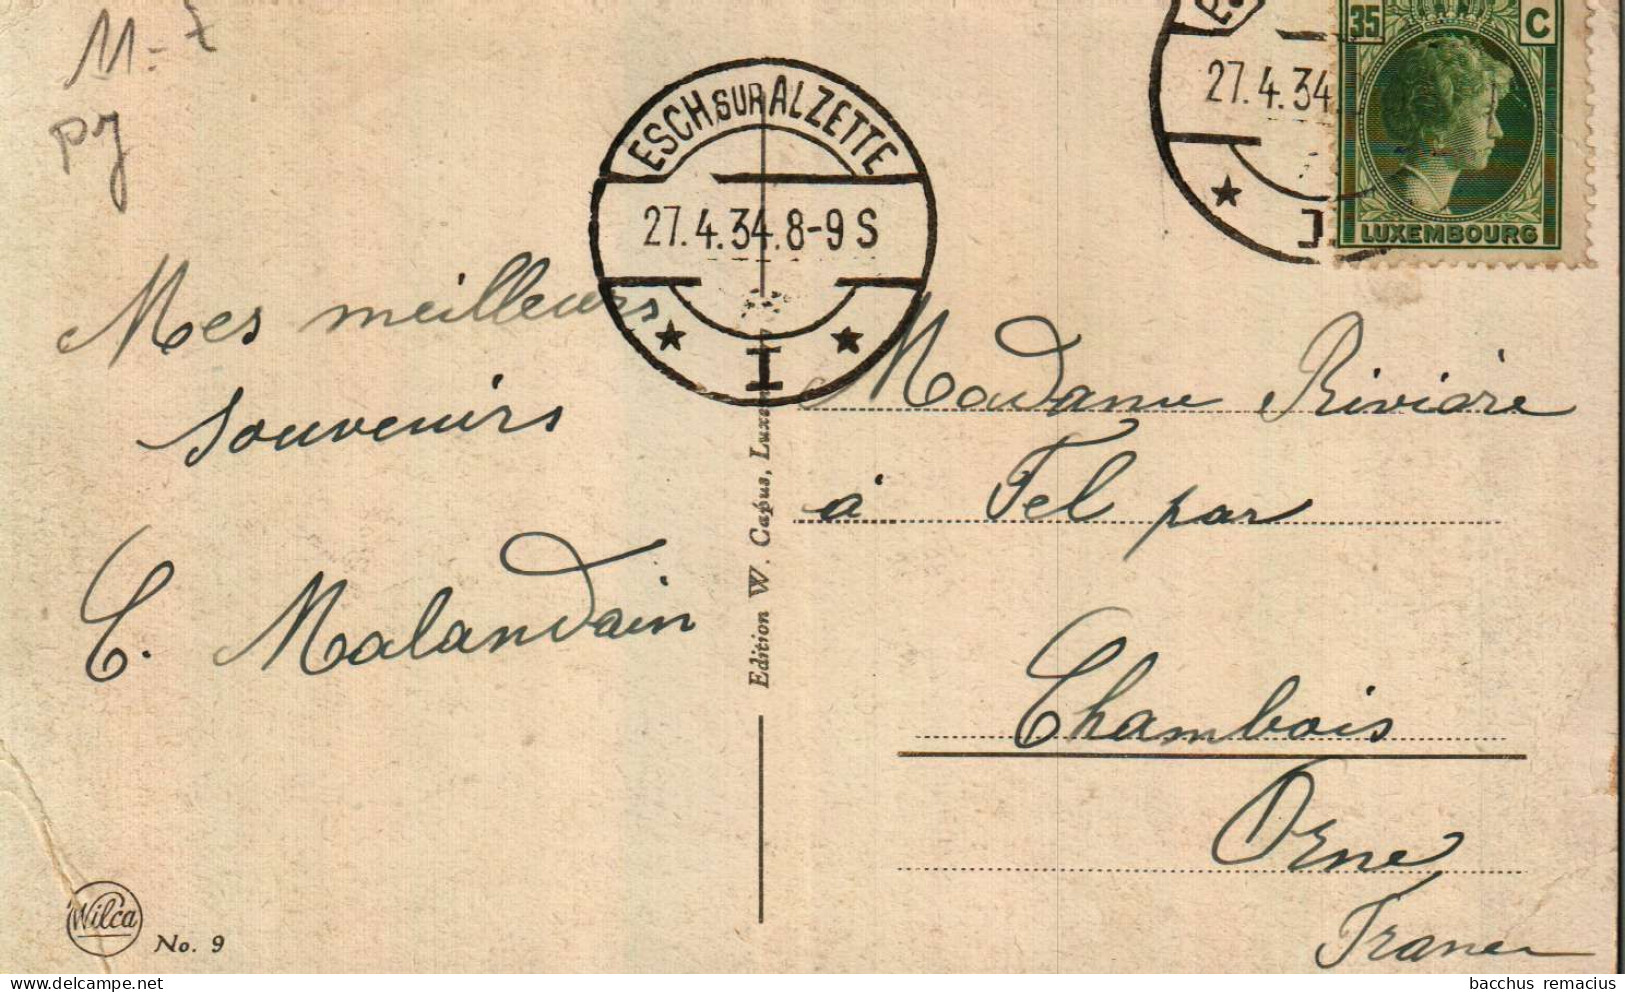 11-
ESCH SUR ALZETTE
27.4.34.8-9 S
I
27.4.34
35 C
LUXEMBOURG
Mes meilleurs
souvenirs
C. Malandain
Edition W. Capus, Luxem
Madame Rivière
à Fel par
Chambois
Orne
France
Wilca
No. 9
bacchus remacius